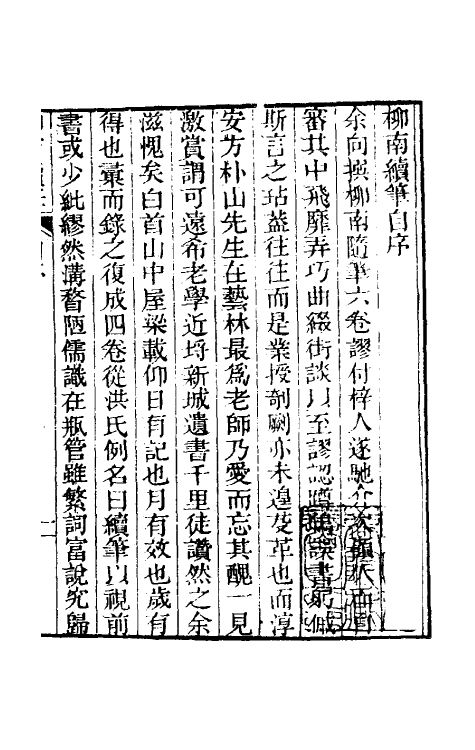 柳南續筆自序
余向撰柳南隨筆六卷謬付梓人遂馳
審其中飛靡弄巧曲綴街談以至謬認
斯言之玷葢往往而是業授剞劂亦未遑芟革也而淳
安方朴山先生在藝林最爲老師乃愛而忘其醜一見
激賞謂可遠希老學近埒新城遺書千里徒讚然之余
滋愧矣白首山中屋梁載仰日有記也月有效也歲有
得也彚而錄之復成四卷從洪氏例名曰續筆以視前
書或少紕繆然溝瞀陋儒識在瓶管雖繁詞富說究歸